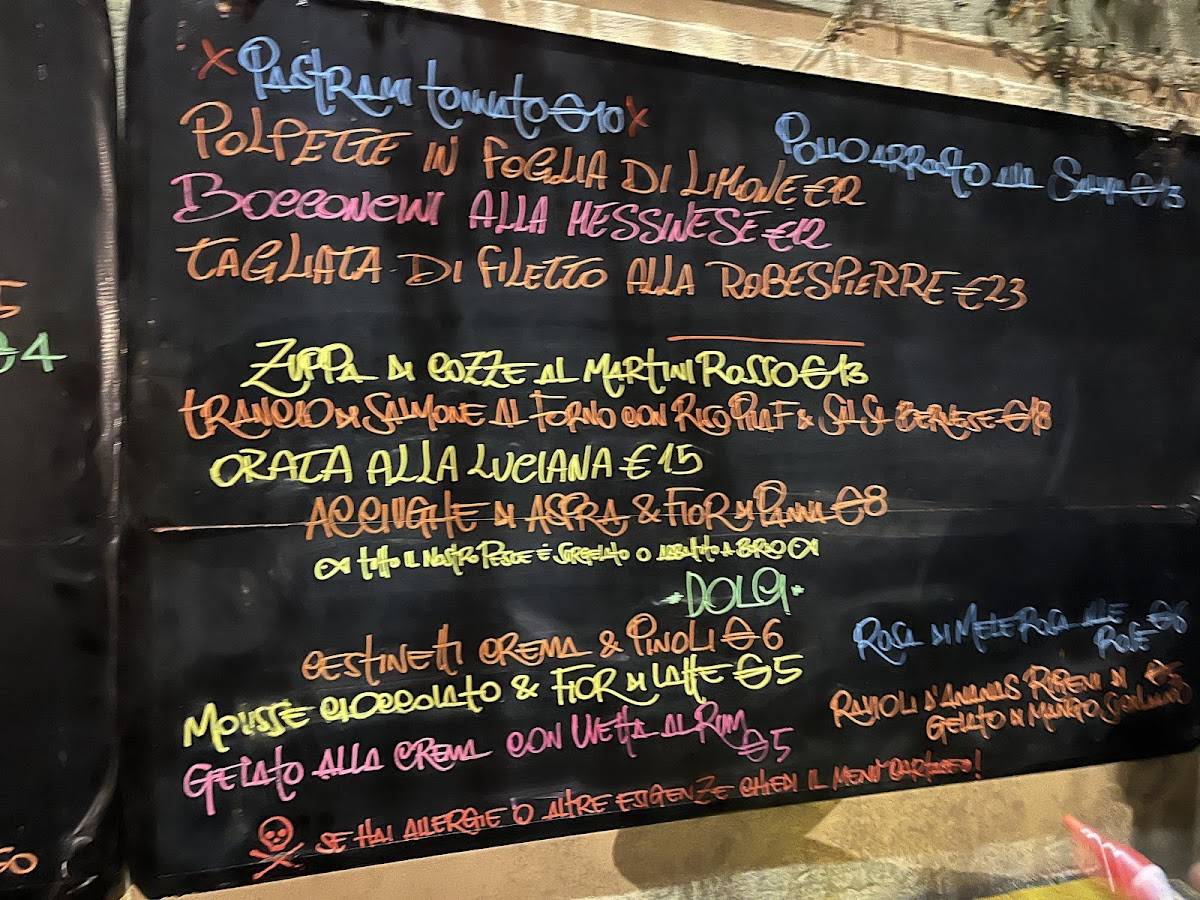 Pastrami tonnato €10
Pollo arrosto alla Salvia €13
POLPETTE IN FOGLIA DI LIMONE €12
BOCCONCINI ALLA MESSINESE €12
TAGLIATA DI FILETTO ALLA ROBESPIERRE €23
ZUPPA DI COZZE AL MARTINI ROSSO €13
TRANCIO DI SALMONE AL FORNO CON RISO PILAF & SALSA BERNESE €18
ORATA ALLA LUCIANA €15
ACCIUGHE DI ASPRA & FIOR DI PANNA €8
TUTTO IL NOSTRO PESCE È SURGELATO O ABBATTUTO A BORDO
DOLCI
CESTINETTI CREMA & PINOLI €6
MOUSSE CIOCCOLATO & FIOR DI LATTE €5
GELATO ALLA CREMA CON UVETTA AL RUM
€5
ROSA DI MELE ROSA ALLE €6
ROSE
RAVIOLI D'ANANAS RIPIENI DI €5
GELATO DI MANGO SICILIANO
SE HAI ALLERGIE O ALTRE ESIGENZE CHIEDI IL MENÙ CARTACEO!
5
€4
50